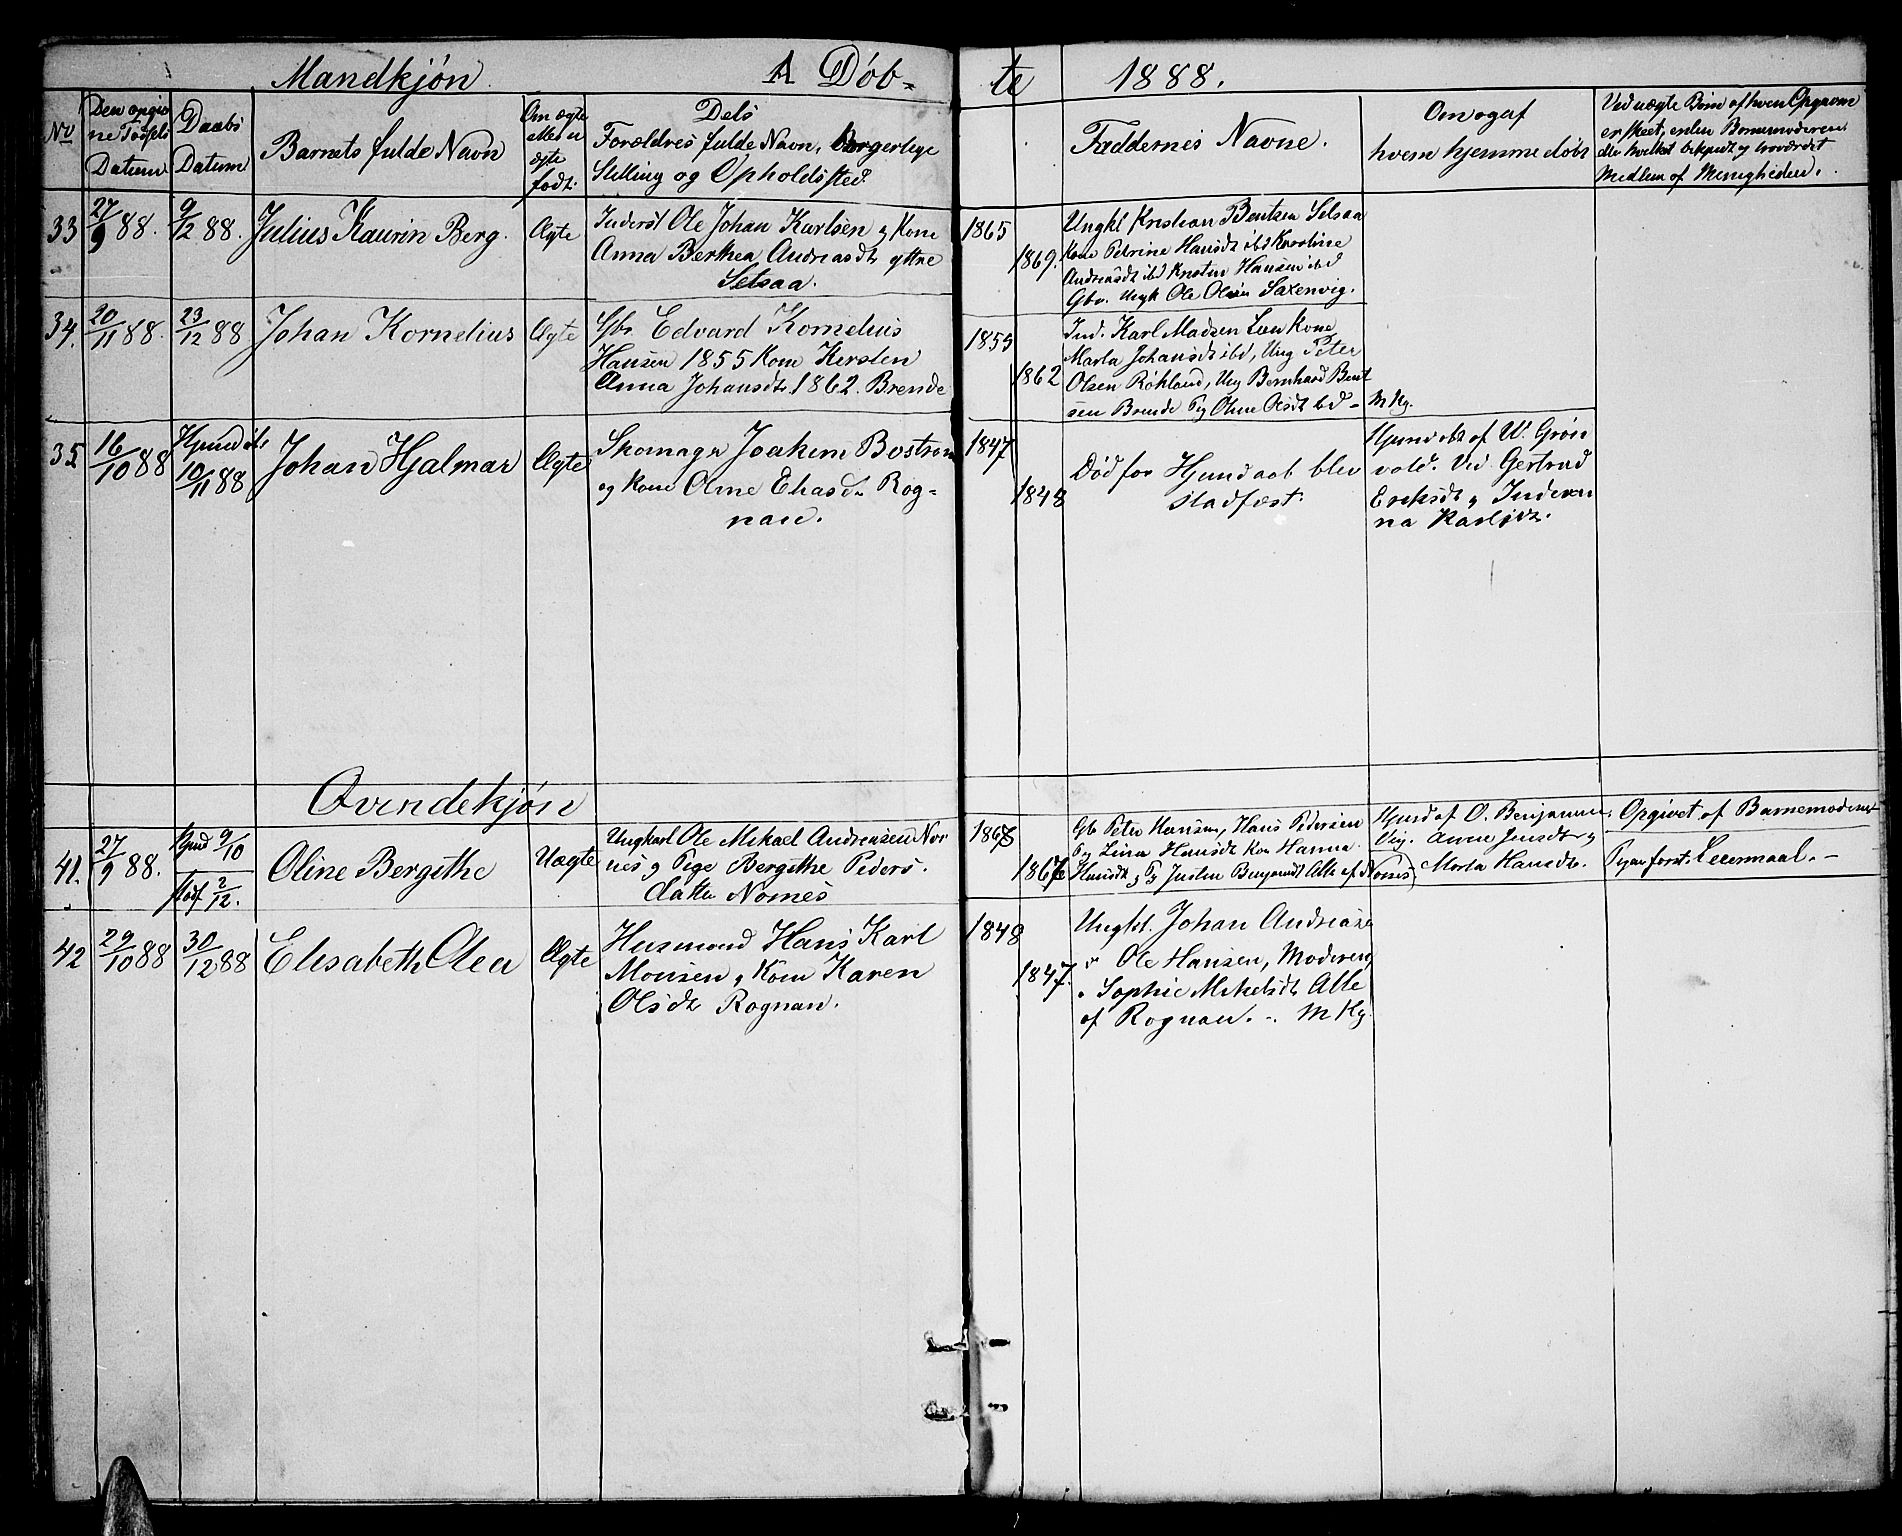 Mandkjøn A Døb-te 1888.
No
Den opgivne Fødsels Datum
Daabs Datum
Barnets fulde Navn
Om ægte eller uægte født.
Dels Forældres fulde Navn, borgerlige Stilling og Opholdssted.
Faddernes Navne.
Om og af hvem hjemmedøbt
Ved uægte Børn af hvem Opgaven er skeet, enten Barnemoderen eller hvilket bekjendt og troværdigt Medlem af Menigheden.
33 27/9 88. 9/12 88. Julius Kaurin Berg. Ægte
Inderst Ole Johan Karlsen og Kone
Anna Berthea Andreasdt. yttre
Setsaa.
1865
1869.
Ungkl Kristian Bentzen Setsaa
Kone Petrine Hansdt ibd Karoline
Andreasdt ibd Kristen Hansen ibd
Gbr. Ungk Ole Olsen Saxenvig.
34. 20/11 88. 23/12 88 Johan Kornelius Ægte
Gbr. Edvard Kornelius
Hansen 1855 Kone Kirsten
Anna Johansdt. 1862. Brende
1855
1862
Ind. Karl Madsen Lun Kone
Marta Johansdt ibd, Ung Peter
Olsen Røkland, Ung Bernhard Bent
sen Brende Pg Oline Olsdt ibd -
M Kg.
35 16/10 88 Hjemdøbt 10/11 88 Johan Hjalmar Ægte
Skomager Joakim Bostrøm
og Kone Oline Eliasdt. Rog-
nan.
1847
1848
Død før Hjemdaab blev
stadfæst.
Hjemdøbt af W. Grøn
vold. Ved Gertrud
Eriksdt og
na Karlsdt.
Qvindekjøn
41. 27/9 88. Hjmd 9/10 stadf 2/12. Oline Bergithe Uægte
Ungkarl Ole Mikael Andreasen Nor
nes og Pige Bergithe Peders.
datter Nornes
1868
1867
Gb Peter Hansen, Hans Pedersen
Pg Lina Hansdt Kon Hanna
Hansdt og Pg Justin Benjamdt Alle af Nornes
Hjmd af O. Benjaminsen
Vig. Anne Jensdt og
Marta Hansdt.
Opgivet af Barnemoderen
Pigens første Leiermaal. -
42 29/10 88 30/12 88 Elisabeth Olea Ægte
Husmand Hans Karl
Monsen og Kone Karen
Olsdt Rognan.
1848
1847.
Ungkl. Johan Andreasen
" Ole Hansen, Moderen,
" Sophie Mikelsdt Alle
af Rognan. -. M Kg.